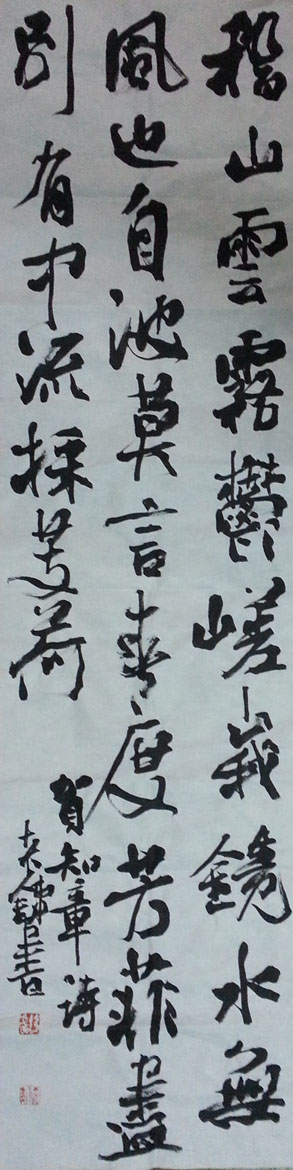 稽山雲霧鬱嵯峨鏡水無
風也自波莫言春度芳菲盡
別有中流採芰荷
賀知章詩
書